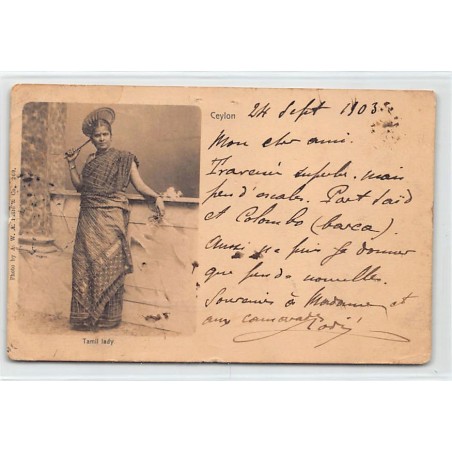 Ceylon
24 Sept 1903
Mon cher ami.
Traversée superbe. mais
peu d'escales. Port Saïd
et Colombo (barca).
Aussi ne puis je donner
que peu de nouvelles.
Souvenirs à Madame et
aux camarades
Photo by A. W. A. & Co.
Tamil lady